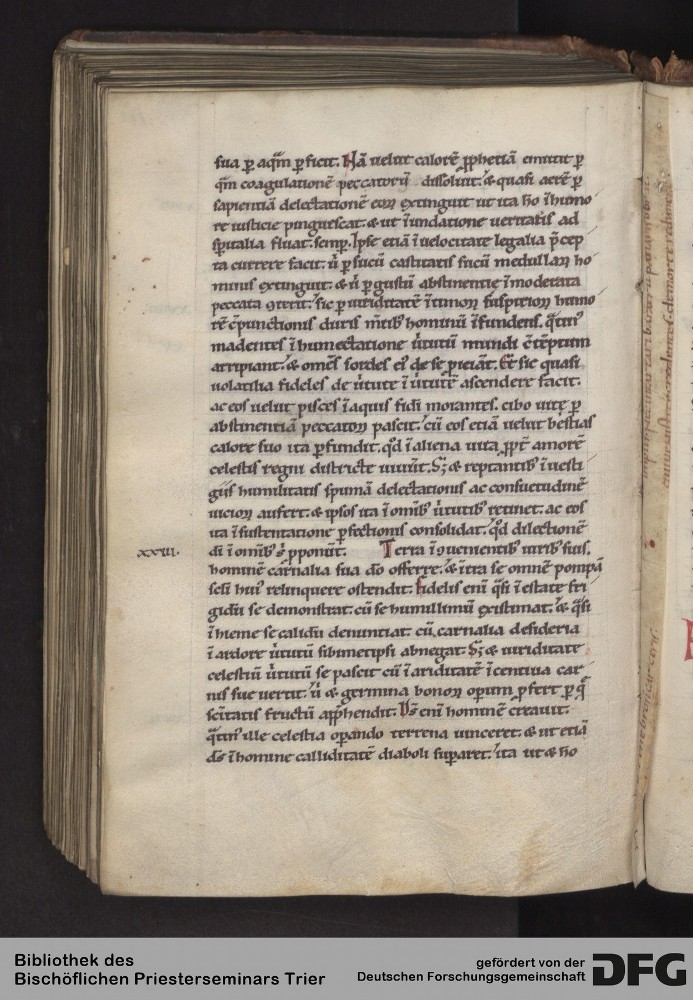 sua ꝑ aquā ꝑficit. Nā uelut calorē ꝓphetiā emittit ꝑ
quā coagulationē peccatorū dissoluit. & quasi aerē ꝑ
sapientiā delectationē eoꝝ extinguit ut ita hō ī humo
re iusticie pinguescat. & ut ī inundatione ueritatis ad
spiritalia fluat semp. Ipse etiā ī uelocitate legalia p̄cep
ta currere facit. ū ꝑ sucū castitatis sucū medullaꝝ ho
minis extinguit. & ū ꝑ gustū abstinentie īmoderata
peccata ꝯterit. sic ꝑ uiriditatē ītimoꝝ suspirioꝝ humo
rē cōpunctionis duris mētib; hominū īfundens. qatin᷒
madentes ī humectatione ūtutū mundi cōtēptum
arripiant. & omēs sordes ei᷒ de se ꝓiciāt. Et sic quasi
uolatilia fideles de ūtute ī ūtutē ascendere facit.
ac eos uelut pisces ī aquis fidei morantes. cibo uitę ꝑ
abstinentiā peccatoꝝ pascit. cū eos etiā uelut bestias
calore suo ita ꝑfundit. qd ī aliena uita ꝓpt amorē
celestis regni districte uiuūt. S; & reptantib; ī uesti
giis humilitatis spumā delectationis ac consuetudinē
uicioꝝ aufert. & ipsos ita ī omīb; ūtutib; retinet. ac eos
ita ī sustentatione ꝑfectionis consolidat. qd dilectionē
dī ī omīb; ꝓponūt. Terra
xxiii.
hominē carnalia sua dō offerre. & ita se omnē pompā
scli hui᷒ relinquere ostendit. Fidelis enī qsi ī estate fri
gidū se demonstrat. cū se humillimū existimat. & qsi
ī hieme se calidū denuntiat. cū carnalia desideria
ī ardore ūtutū sibimetipsi abnegat. S; & uiriditate
celestiū ūtutū se pascit cū ī ariditatē īcentiua car
nis sue uertit. ū & germina bonoꝝ opum ꝓfert ꝑ q
scitatis fructū appͪendit. Ds enī hominē creauit.
qatin᷒ ille celestia opando terrena uinceret. & ut etiā
ds ī homine calliditatē diaboli supaet. ita ut & hō
Bibliothek des
Bischöflichen Priesterseminars Trier
gefördert von der
Deutschen Forschungsgemeinschaft
DFG